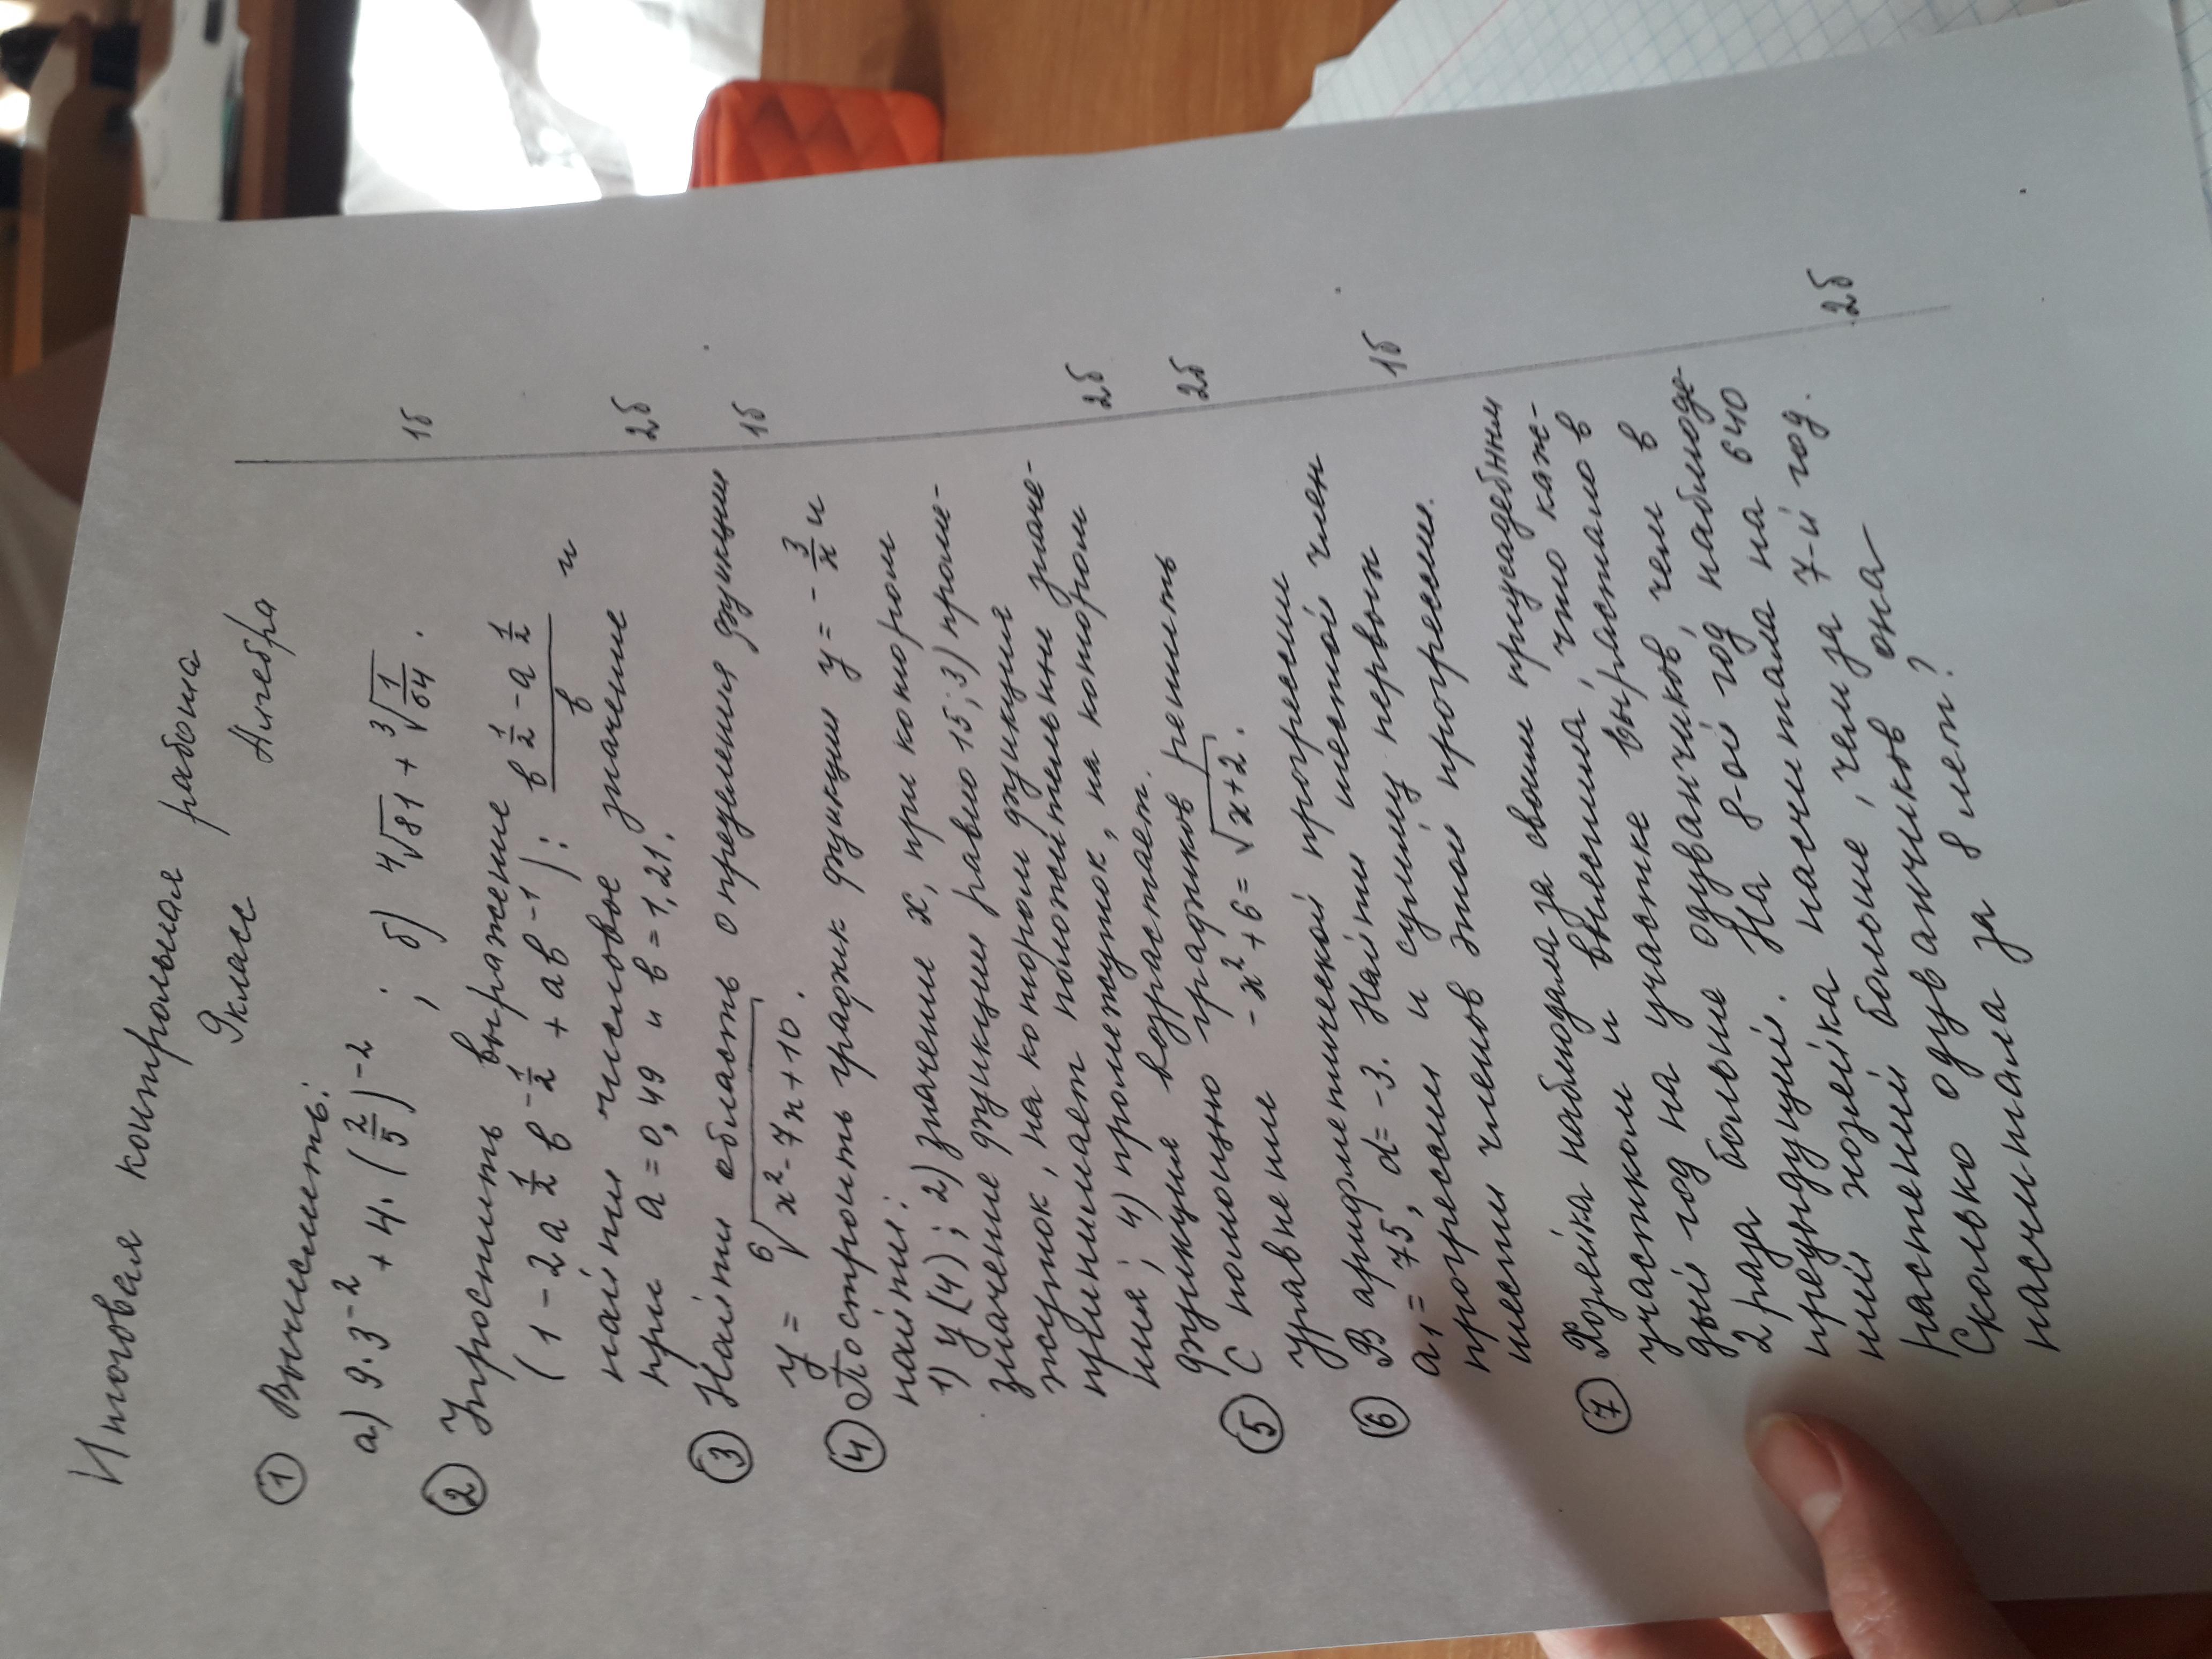 Итоговая контрольная работа
9 класс Алгебра
① Вычислить: 1б
а) 9·3⁻² + 4·(2/5)⁻² ; б) ⁴√81 + ³√(1/64).
② Упростить выражение
(1 - 2a^(1/2) b^(-1/2) + ab⁻¹) : (b^(1/2) - a^(1/2))/b и
найти числовое значение 2б
при a = 0,49 и b = 1,21.
③ Найти область определения функции 1б
y = ⁶√(x² - 7x + 10).
④ Построить график функции y = -3/x и
найти:
1) y(4); 2) значение x, при котором
значение функции равно 15; 3) проме-
жуток, на котором функция
принимает положительные значе-
ния; 4) промежуток, на котором 2б
функция возрастает.
⑤ С помощью графиков решить 2б
уравнение -x² + 6 = √(x+2).
⑥ В арифметической прогрессии
a₁ = 75, d = -3. Найти шестой член
прогрессии и сумму первых 1б
шести членов этой прогрессии.
⑦ Хозяйка наблюдала за своим приусадебным
участком и выяснила, что каж-
дый год на участке вырастало в
2 раза больше одуванчиков, чем в
предыдущий. На 8-ой год наблюде-
ний хозяйка насчитала на 640
растений больше, чем за 7-й год.
Сколько одуванчиков она 2б
насчитала за 8 лет?